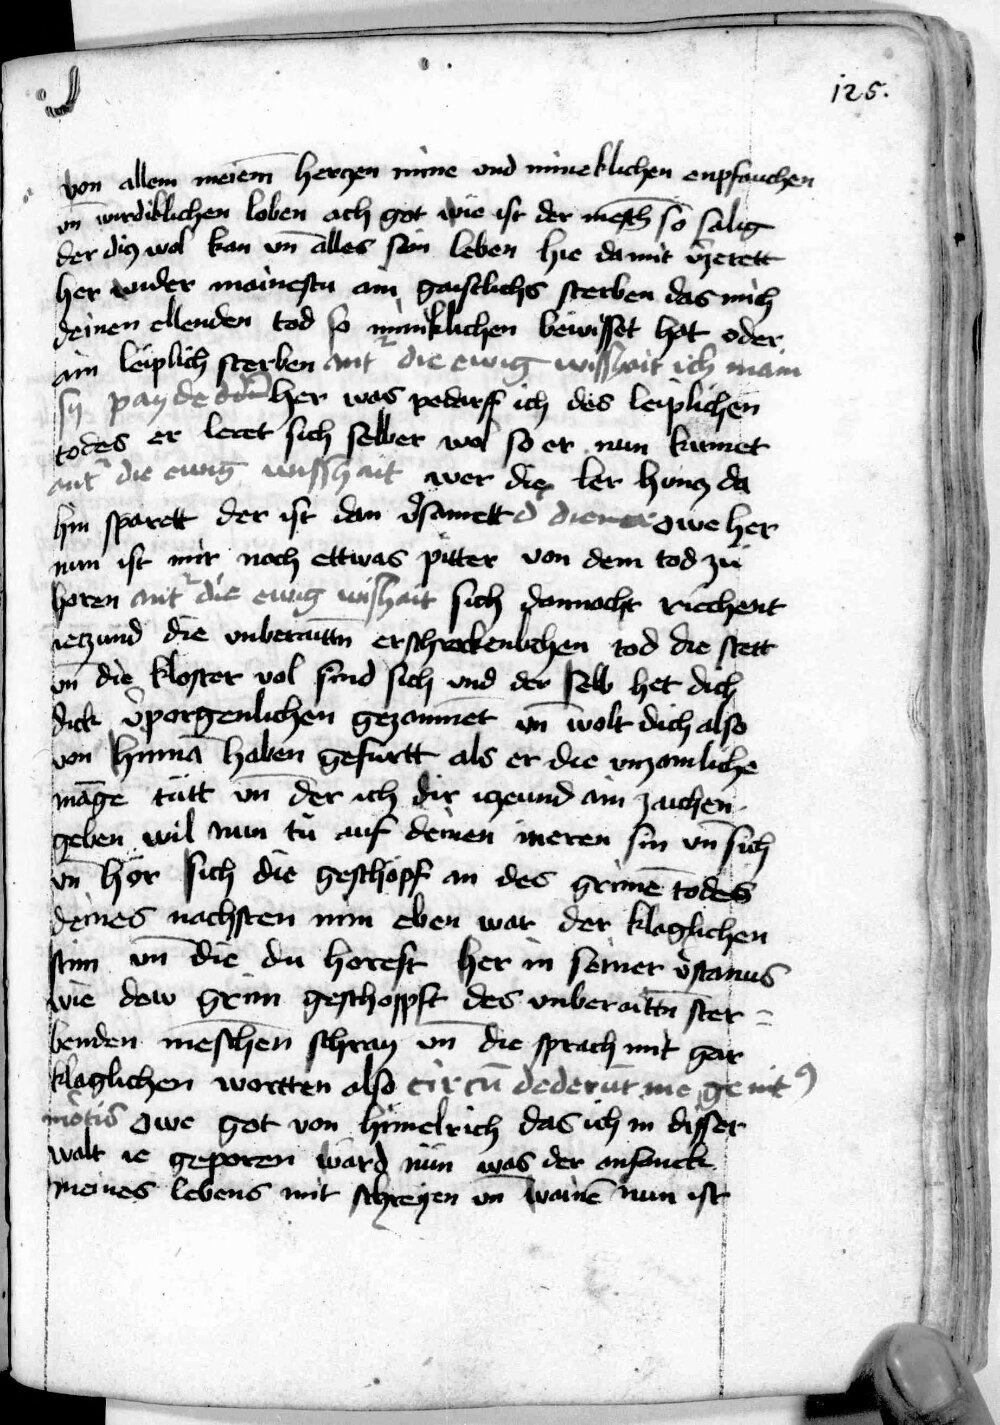 125.
von allem meiem̄ herczen mīne und mineklichen enpfauchen
vn̄ wirdiklichen loben ach got wie ist der mēsch so sālig
der dis wol kan vn̄ alles sein leben hie da mit v̓zerett
her wider mainestu ain gaistlichs sterben das mich
deinen ellenden tod so miniklichen bewisset hat oder
ain leiplich sterben ant² die ewig wisshait ich main
sy payde her was pedarff ich des leiplichen
todes er leret sich selber wol so er nun kumet
ant² die ewig wisshait wer die ler huncz da
hin sparett der ist dan v̓samett d̓ diener owe her
nun ist mir noch ettwas pitter von dem tod zu
horen ant² die ewig wishait sich dannocht riechent
ieczund die vnberaittn̄ erschrockenlichen tod die stett
vn̄ die kloster vol sind sich und der selb het dich
dick v̓porgenlichen gezaumet vn̄ wolt dich also
von hinnā haben gefürtt als er die vnzamliche
māge tütt vn̄ der ich dir iczund ain zaichen
geben wil nun tu auf deinen ineren sin vn̄ sich
vn̄ hör sich die geschöpf an des grimē todes
deines nachsten nim eben war der klaglichen
stim vn̄ die du horest her in seiner v̓stanus
wie dew grim geschoppft des vnberaittn̄ ster=
benden mēschen schray vn̄ die sprach mit gar
klaglichen wortten also circū dederūt me gemit⁹
mōtis owe got von himelrich das ich in disser
walt ie geporen ward nün was der anfanck
meines lebens mit schreyen vn̄ wainē nun ist